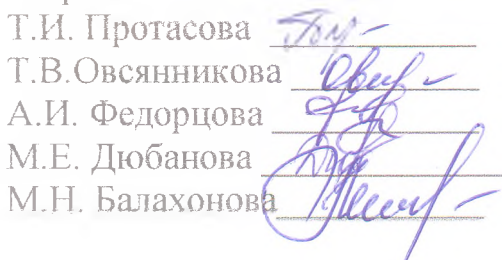 Т.И. Протасова
Т.В.Овсянникова
А.И. Федорцова
М.Е. Дюбанова
М.Н. Балахонова